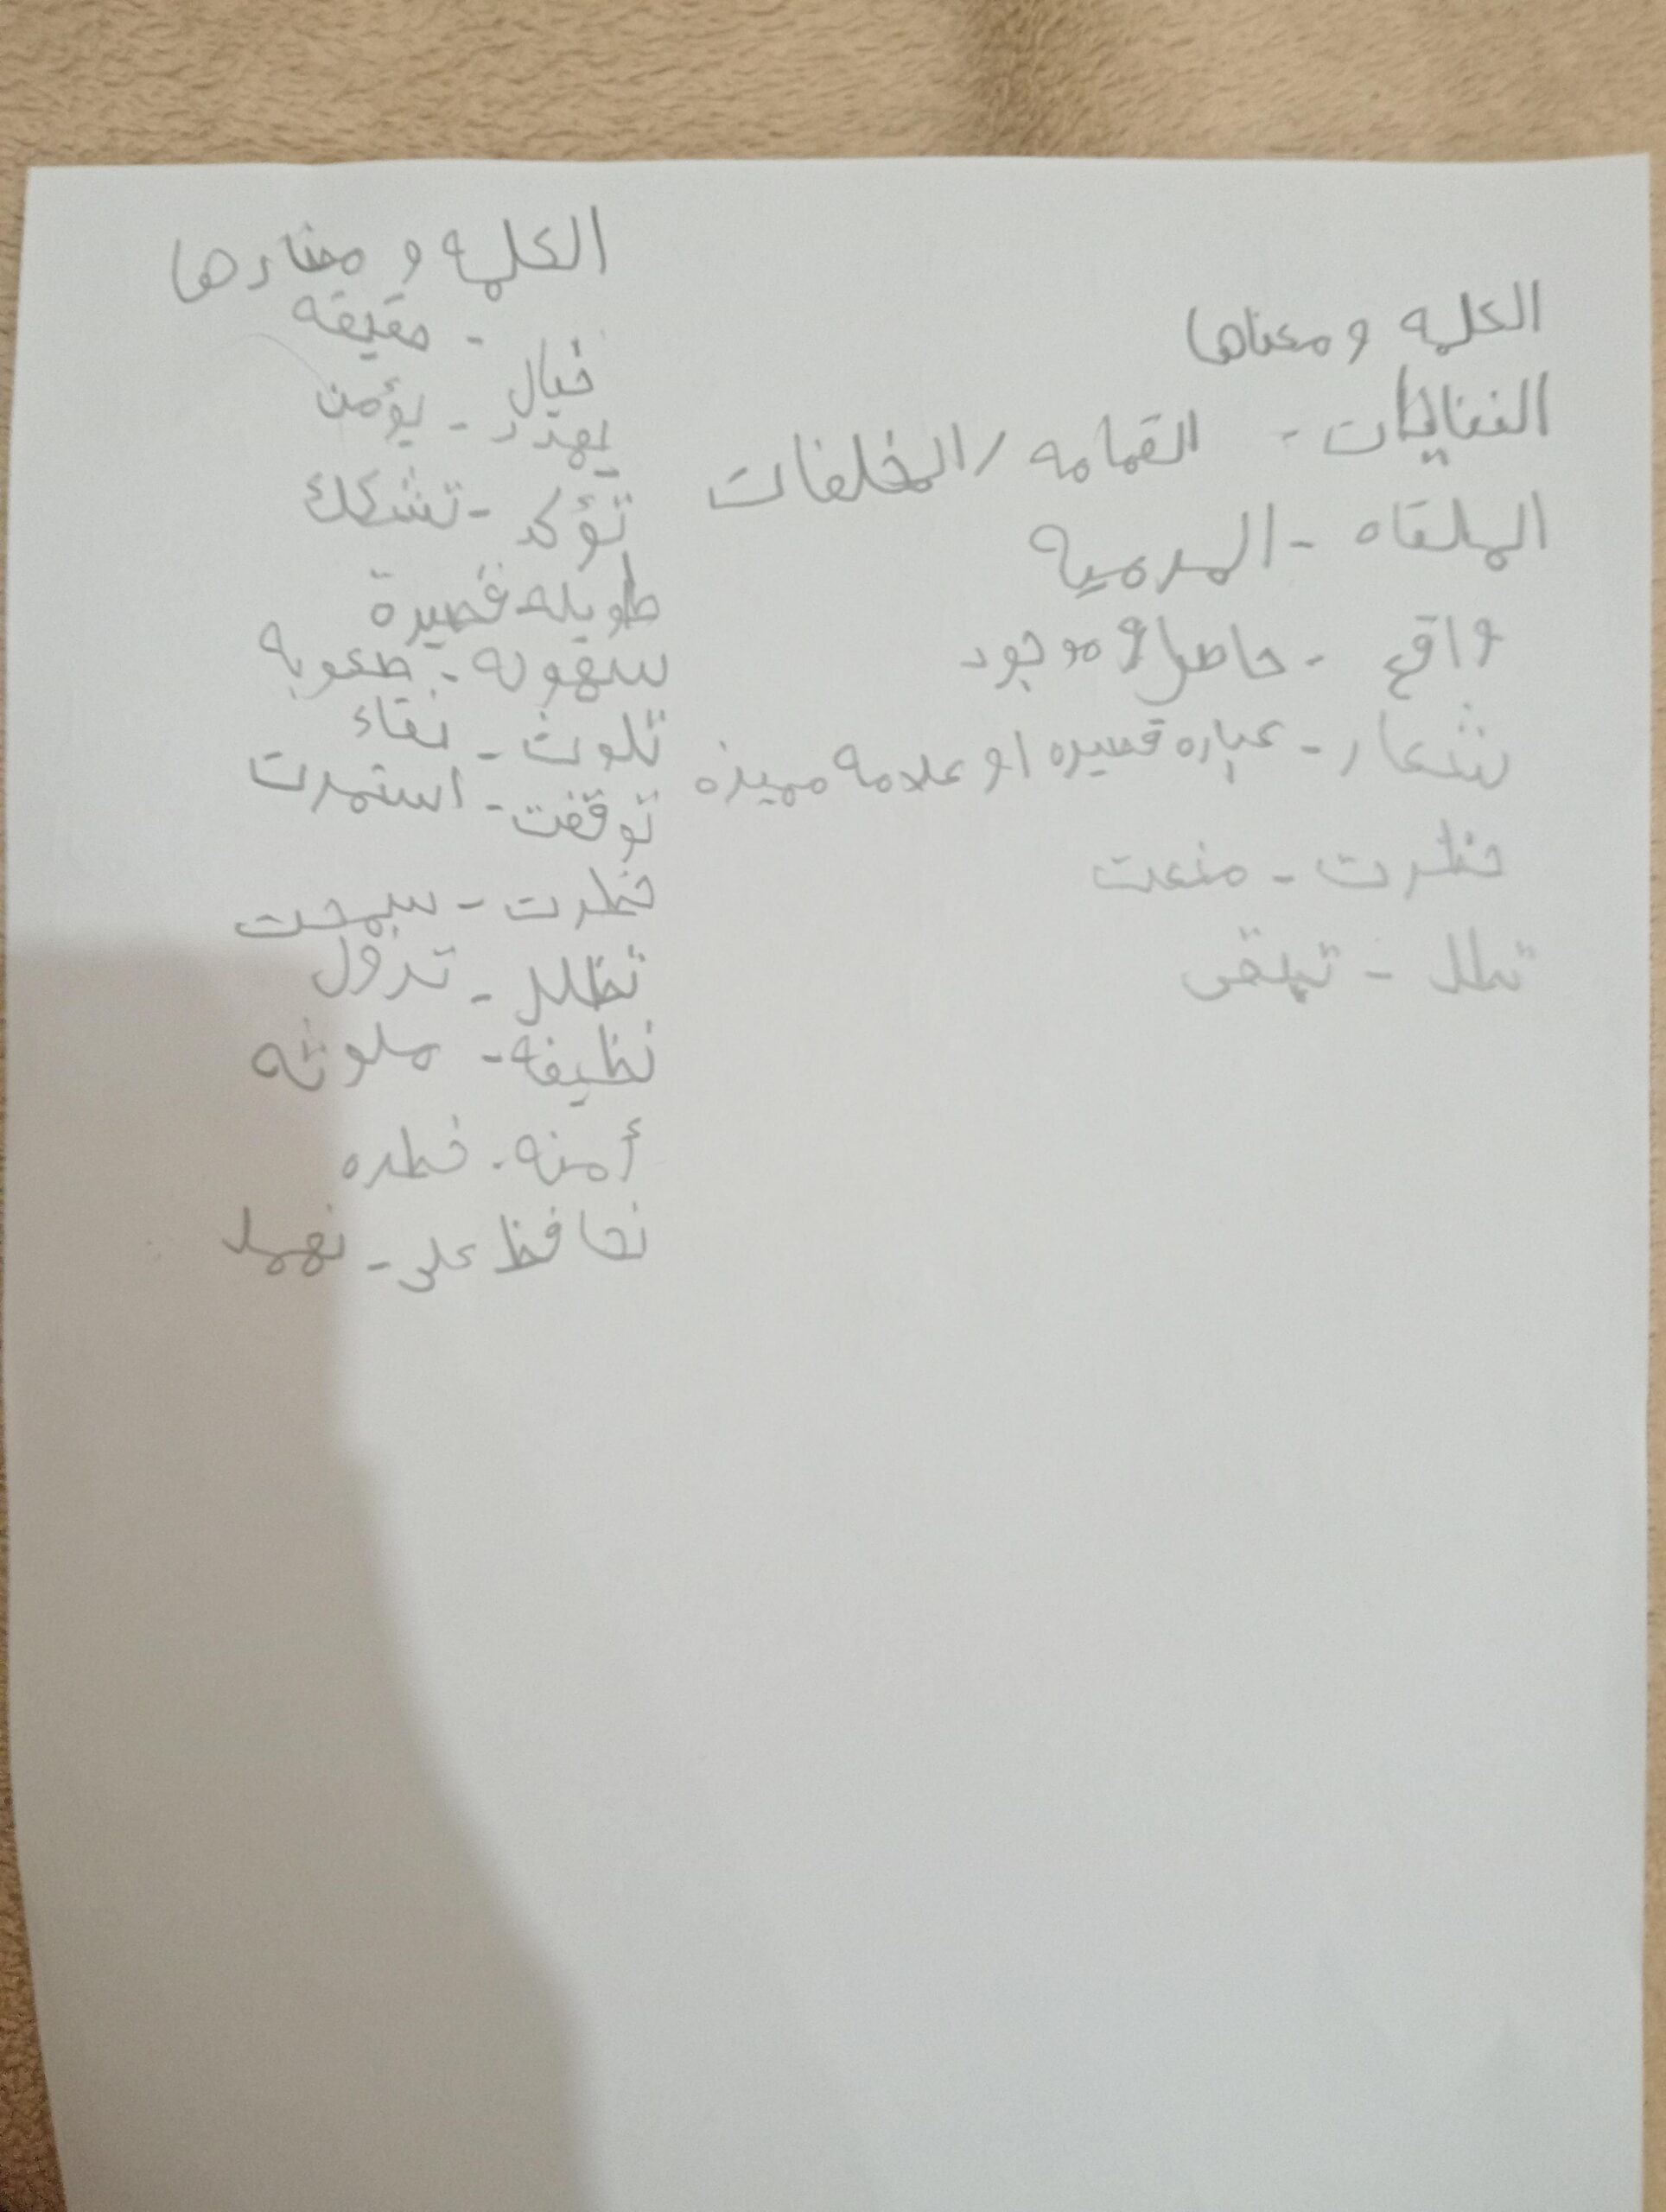 الكلمه ومعناها
النفايات - القمامه / المخلفات
الملقاه - المرميه
واقع - حاصل و موجود
شعار - عباره قصيره او علامه مميزه
حظرت - منعت
تظل - تبقى
الكلمه و مضادها
خيال - حقيقه
يهدد - يؤمن
تؤكد - تشكك
طويله - قصيرة
سهوله - صعوبه
تلوث - نقاء
توقفت - استمرت
حظرت - سمحت
تظل - تزول
نظيفه - ملوثه
أمنه - خطره
نحافظ على - نهمل